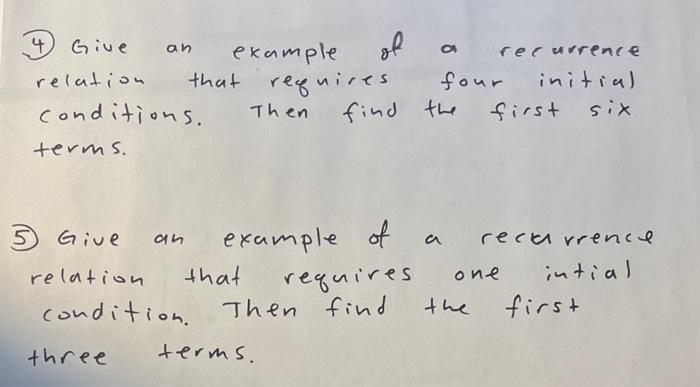 ④ Give an example of a recurrence
relation that requires four initial
conditions. Then find the first six
terms.
⑤ Give an example of a recurrence
relation that requires one intial
condition. Then find the first
three terms.